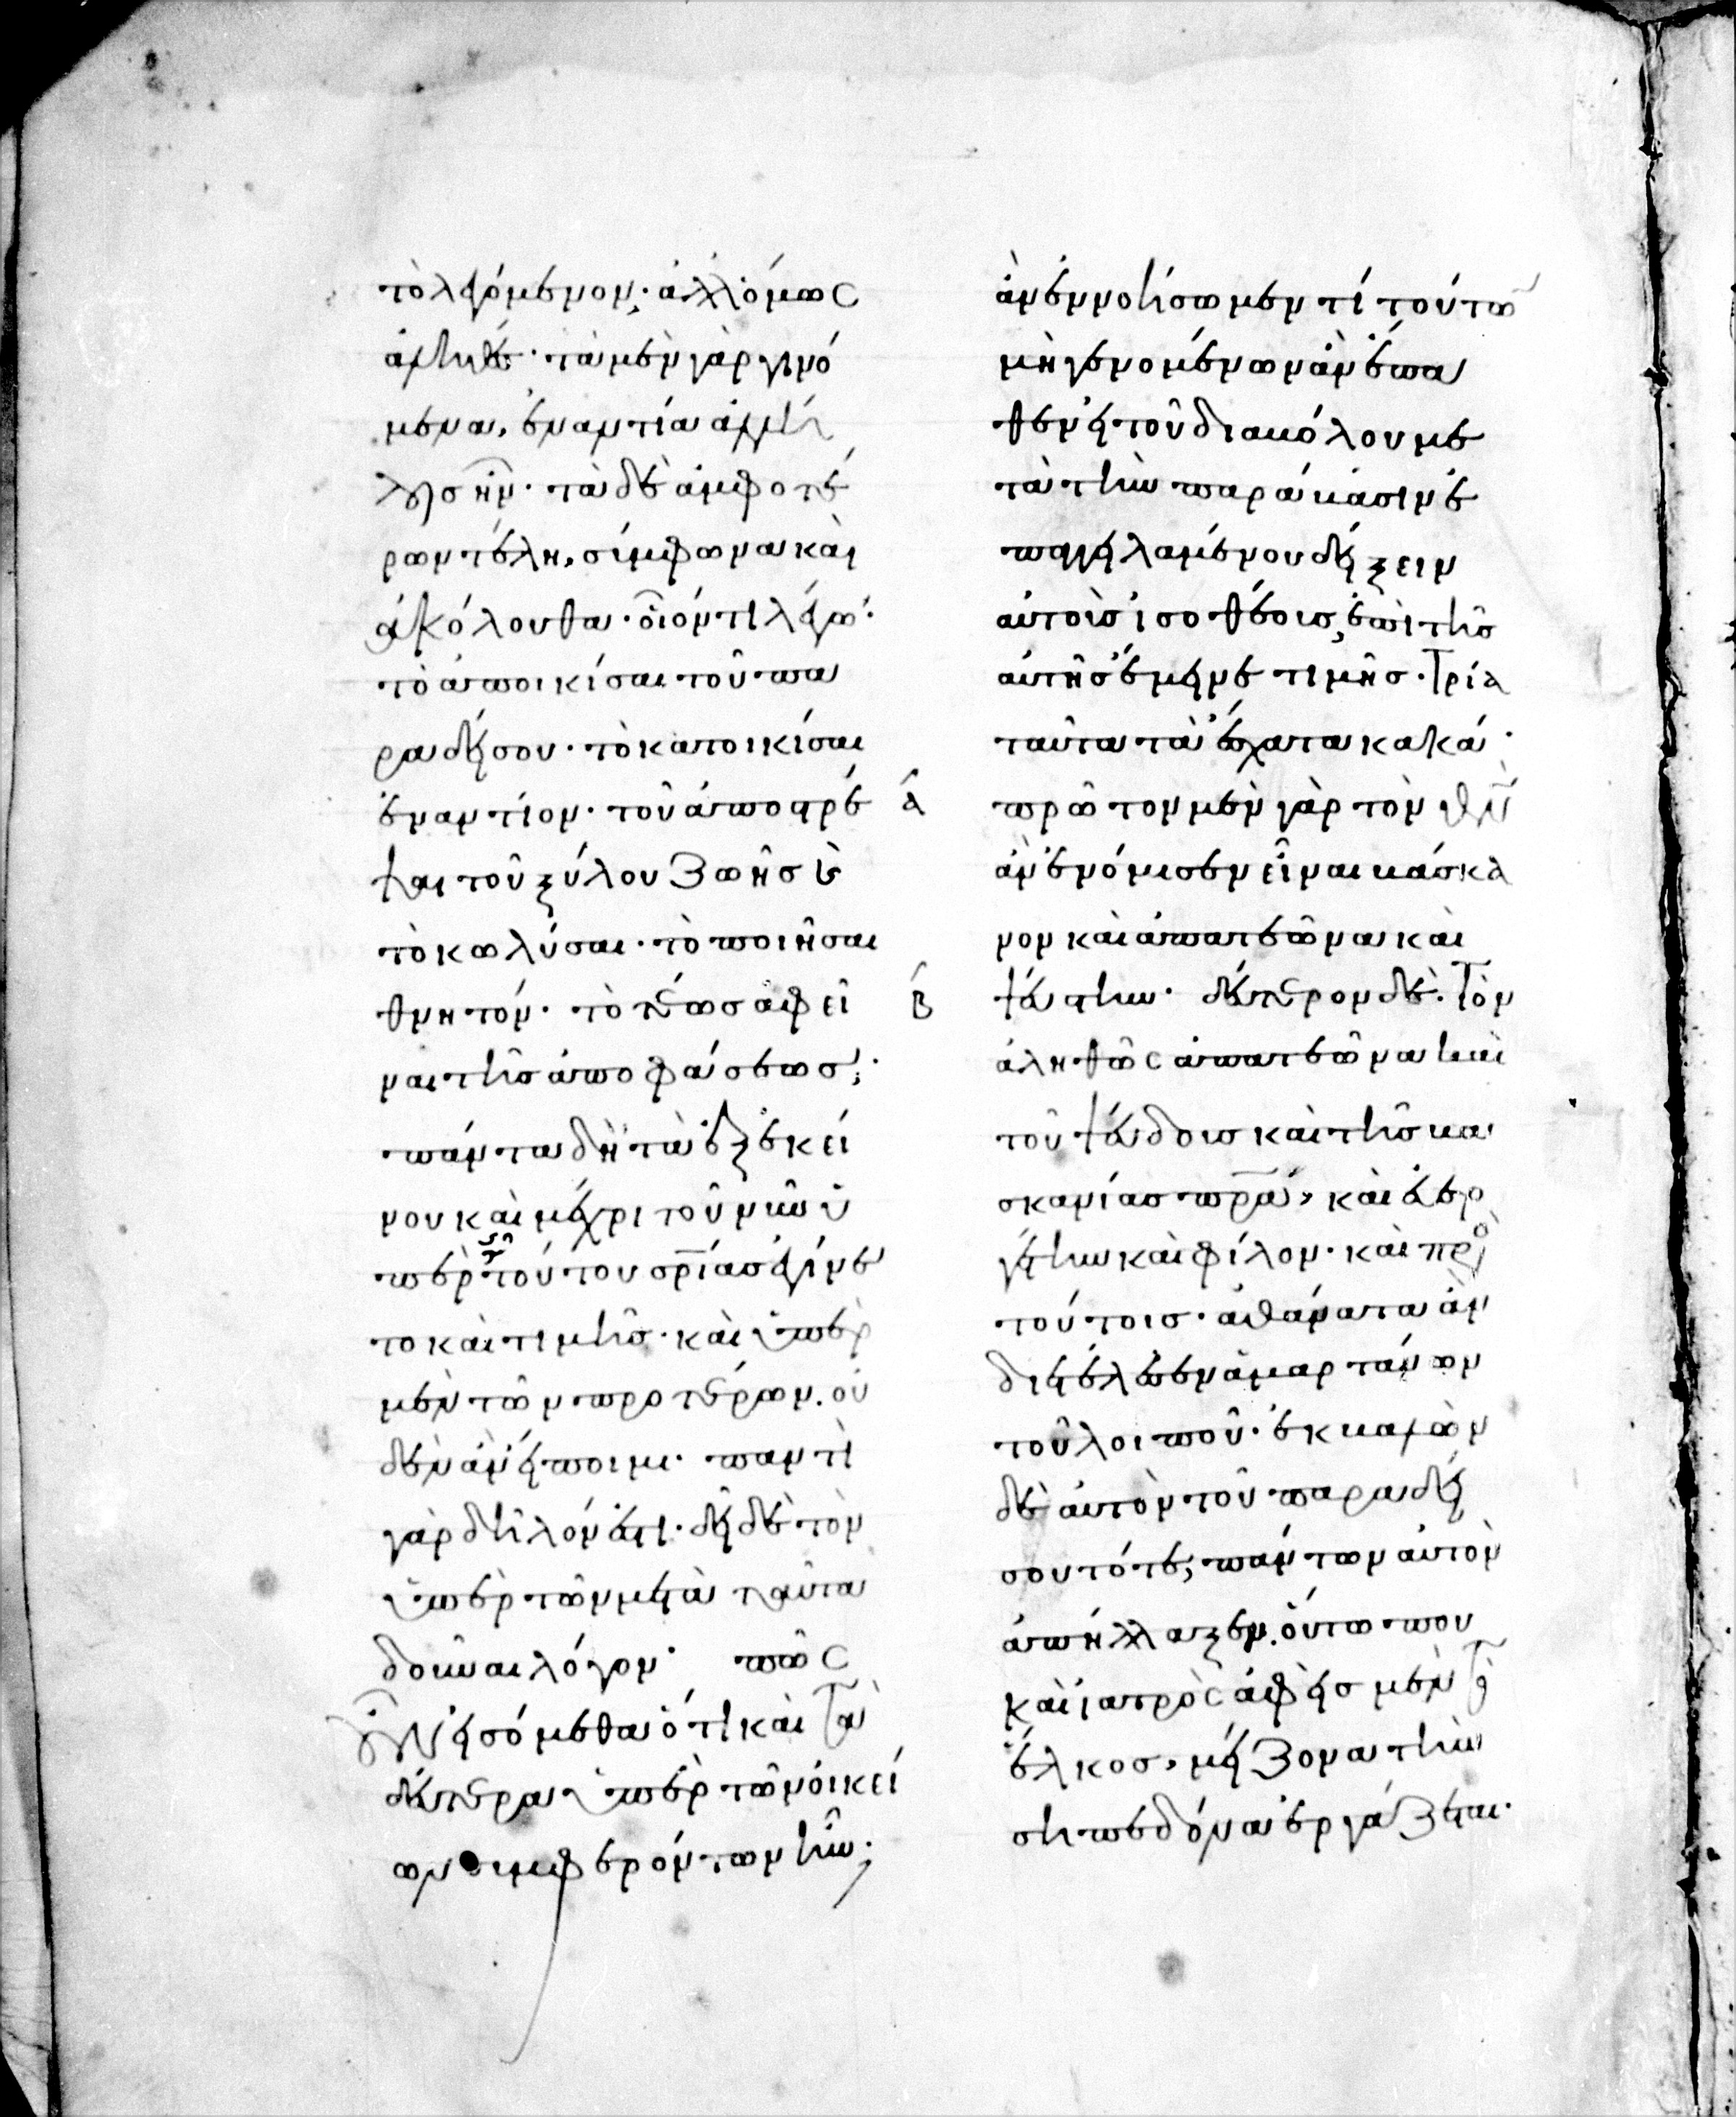 τὸ λεγόμενον· ἀλλ' ὅμως
ἀληθές· τὰ μὲν γὰρ γινό
μενα, ἐναντία ἀλλή
λοισ ἦν· τὰ δὲ ἀμφοτέ
ρων τέλη, σύμφωνα καὶ
ἀκόλουθα· οἷόν τι λέγω·
τὸ ἀποικίσαι τοῦ πα
ραδείσου· τὸ κατοικίσαι
ἐναντίον· τοῦ ἀποστρέ
ψαι τοῦ ξύλου ζωῆσ ἢ
τὸ κωλύσαι· τὸ ποιῆσαι
θνητόν· τὸ τέωσ ἀφεῖ
ναι τῆσ ἀποφάσεωσ;
πάντα δὴ τὰ ἐξ ἐκεί
νου καὶ μέχρι τοῦ νῦν ὑ
πὲρ τῆσ τούτου σρίασ ἐγίνε
το καὶ τιμῆσ· καὶ ὑπὲρ
μὲν τῶν προτέρων. οὐ
δὲν ἂν εἴποιμι· παντὶ
γὰρ δῆλόν ἐστι· δεῖ δὲ τὸν
ὑπὲρ τῶν μετὰ ταῦτα
δοῦναι λόγον· πῶς
οὖν εἰσόμεθα ὅτι καὶ τὰ
δεύτερα ὑπὲρ τῶν οἰκεί
ων συμφερόντων ἦν;
ἂν ἐννοήσωμεν τί τούτω̅
μὴ γενομένων ἂν ἔπα
θεν εἰ τοῦ διαβόλου με
τὰ τὴν παράβασιν ἐ
παγγειλαμένου δείξειν
αὐτοὺσ ἰσοθέουσ, ἐπὶ τῆσ
αὐτῆσ ἔμεινε τιμῆσ. Τρία
ταῦτα τὰ ἔσχατα κακά·
α πρῶτον μὲν γὰρ τὸν θν̅
ἂν ἐνόμισεν εἶναι βάσκα
νον καὶ ἀπατεῶνα καὶ
β ψεύστην· δεύτερον δὲ. Τὸν
ἀληθῶς ἀπατεῶνα καὶ
τοῦ ψεύδουσ καὶ τῆσ βα
σκανίασ πρ̅α, καὶ εὐερ
γέτην καὶ φίλον· καὶ πρὸ
τούτοισ· ἀθάνατα ἂν
διετέλεσεν ἁμαρτάνων
τοῦ λοιποῦ· ἐκβαλὼν
δὲ αὐτὸν τοῦ παραδεί
σου τότε, πάντων αὐτὸν
ἀπήλλαξεν. οὕτω που
καὶ ἰατρὸς ἀφεὶσ μὲν τὸ
ἕλκοσ, μείζονα τὴν
σηπεδόνα ἐργάζεται·